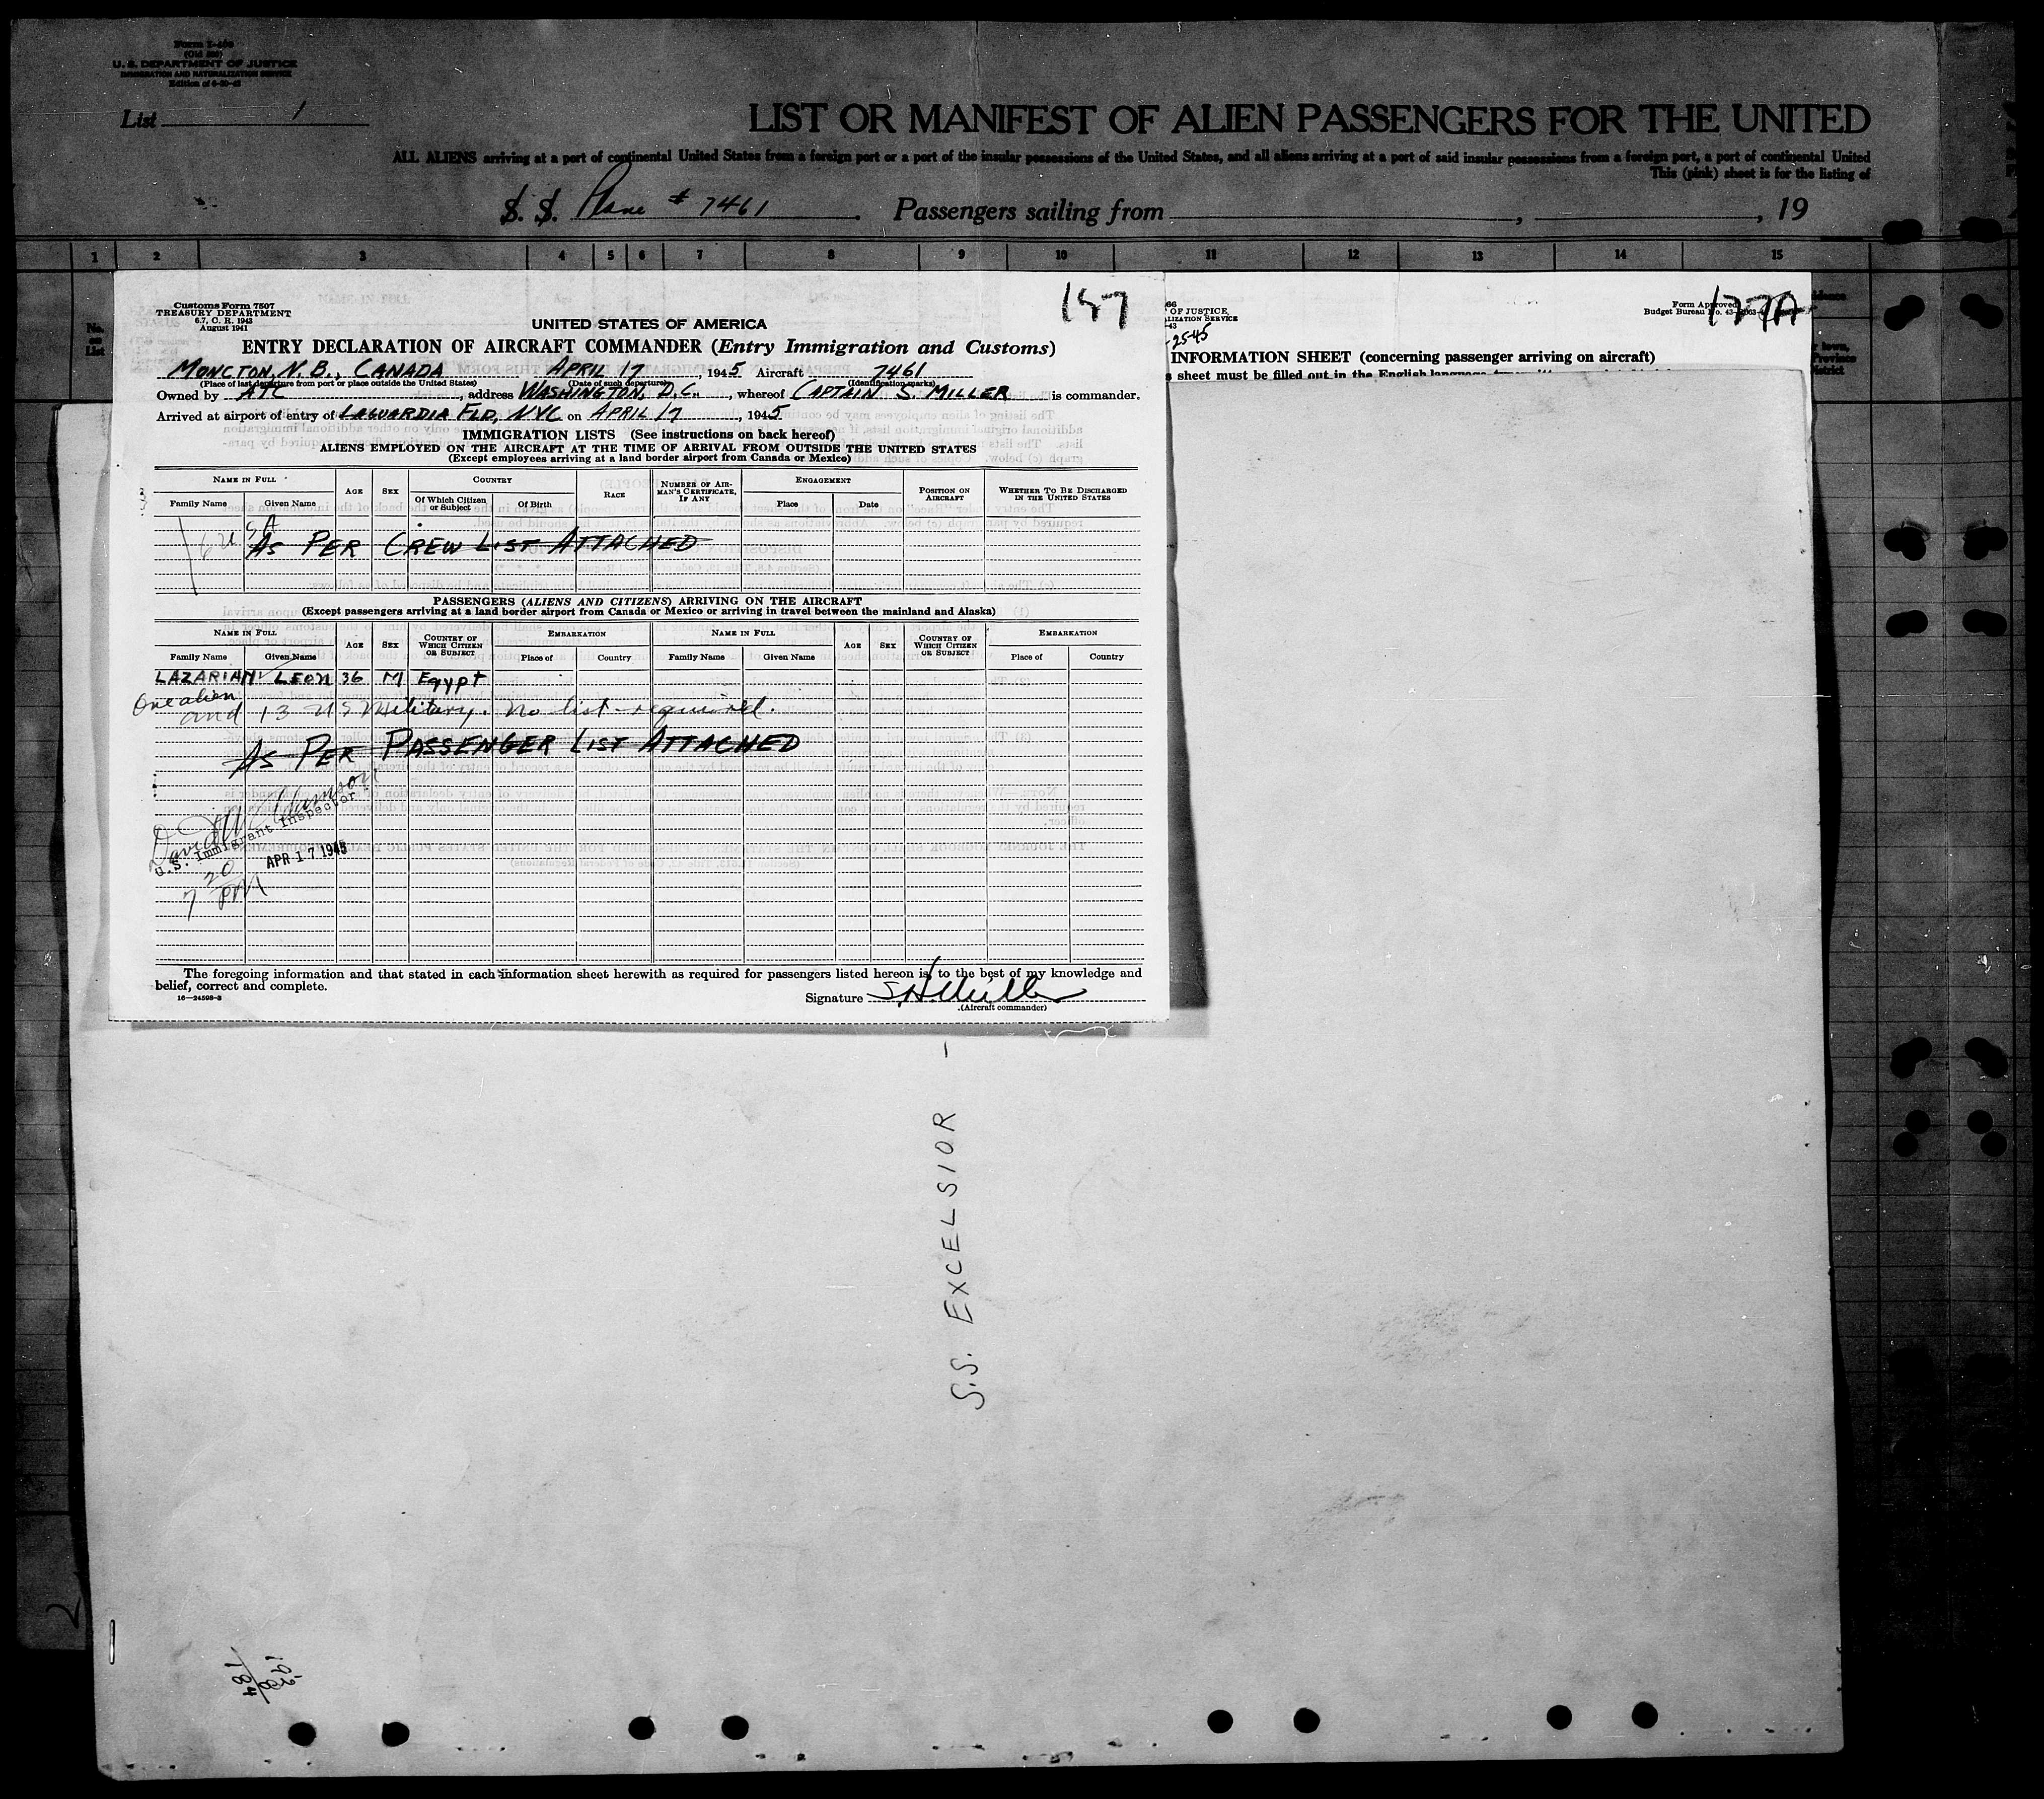 Form I-466
(Old 500)
U. S. DEPARTMENT OF JUSTICE
IMMIGRATION AND NATURALIZATION SERVICE
List 1
LIST OR MANIFEST OF ALIEN PASSENGERS FOR THE UNITED
ALL ALIENS arriving at a port of continental United States from a foreign port or a port of the insular possessions of the United States, and all aliens arriving at a port of said insular possessions from a foreign port, a port of continental United
This (pink) sheet is for the listing of
S. S. Plane # 7461 Passengers sailing from , , 19
1 2 3 4 5 6 7 8 9 10 11 12 13 14 15
No. on List
Customs Form 7507
TREASURY DEPARTMENT
6.7, C. R. 1943
August 1941
157
UNITED STATES OF AMERICA
ENTRY DECLARATION OF AIRCRAFT COMMANDER (Entry Immigration and Customs)
MONCTON, N. B., CANADA APRIL 17, 1945 Aircraft 7461
(Place of last departure from port or place outside the United States) (Date of such departure) (Identification marks)
Owned by ATC, address WASHINGTON, D.C., whereof CAPTAIN S. MILLER is commander.
Arrived at airport of entry of LAGUARDIA FLD, NYC on APRIL 17, 1945
IMMIGRATION LISTS (See instructions on back hereof)
ALIENS EMPLOYED ON THE AIRCRAFT AT THE TIME OF ARRIVAL FROM OUTSIDE THE UNITED STATES
(Except employees arriving at a land border airport from Canada or Mexico)
NAME IN FULL AGE SEX COUNTRY RACE NUMBER OF AIRMAN'S CERTIFICATE, IF ANY ENGAGEMENT POSITION ON AIRCRAFT WHETHER TO BE DISCHARGED IN THE UNITED STATES
Family Name Given Name Of Which Citizen or Subject Of Birth Place Date
AS PER CREW LIST ATTACHED
PASSENGERS (ALIENS AND CITIZENS) ARRIVING ON THE AIRCRAFT
(Except passengers arriving at a land border airport from Canada or Mexico or arriving in travel between the mainland and Alaska)
NAME IN FULL AGE SEX COUNTRY OF WHICH CITIZEN OR SUBJECT EMBARKATION NAME IN FULL AGE SEX COUNTRY OF WHICH CITIZEN OR SUBJECT EMBARKATION
Family Name Given Name Place of Country Family Name Given Name Place of Country
LAZARIAN LEON 36 M Egypt
One alien
and 13 US Military. No list required.
AS PER PASSENGER LIST ATTACHED
David
U.S. Immigrant Inspector
APR 17 1945
7 20 PM
The foregoing information and that stated in each information sheet herewith as required for passengers listed hereon is, to the best of my knowledge and
belief, correct and complete.
16—24598-3
Signature S. H. Miller
(Aircraft commander)
66
OF JUSTICE,
LIZATION SERVICE
-43
-25-45
Form Approved
Budget Bureau No. 43-
177A
INFORMATION SHEET (concerning passenger arriving on aircraft)
s sheet must be filled out in the English language
S.S. EXCELSIOR -
2